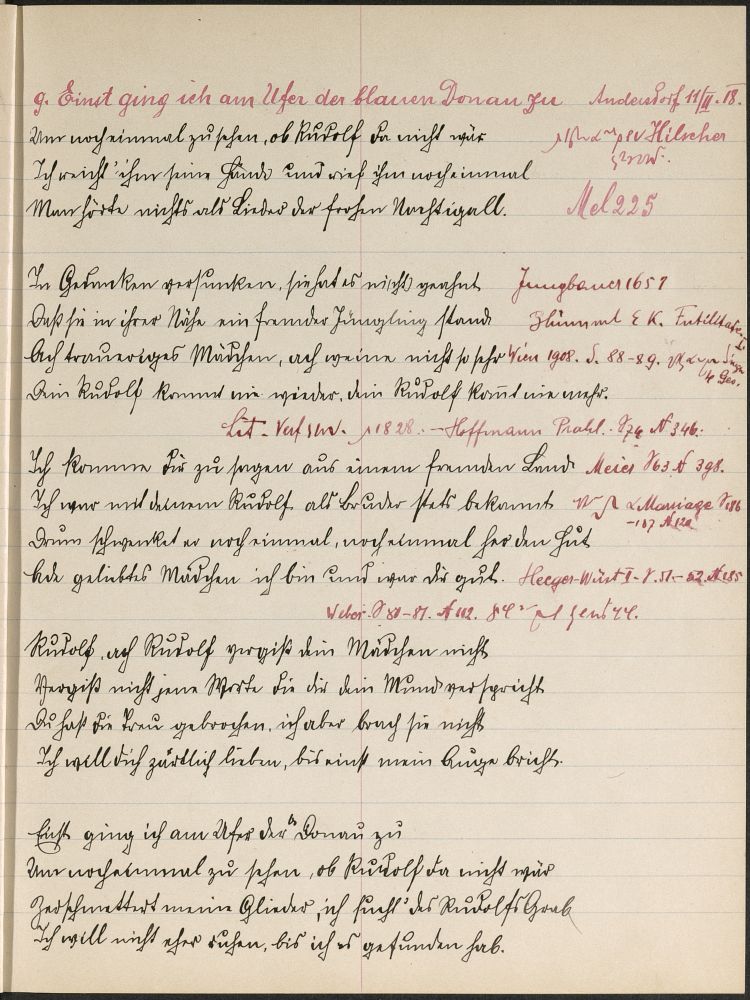 9. Einst ging ich am Ufer der blauen Donau zu Andersdorf 11/II. 18.
Um noch einmal zu sehen, ob Rudolf da nicht wär Hilscher
Ich reicht' ihm seine Hände und rief ihm noch einmal
Man hörte nichts als Lieder der frohen Nachtigall. Mel 225
In Gedanken versunken, sie hat es ni(cht) geahnt Jungbauer 1657
Daß sie in ihrer Nähe ein fremder Jüngling stand Blümml E K. Futilitates I.
Ach trauriges Mädchen, ach weine nicht so sehr Wien 1908. S. 88-89.
Dein Rudolf kommt nie wieder, dein Rudolf kom̄t nie mehr.
Lit. 1828. - Hoffmann Prahl. 346.
Ich komme dir zu sagen aus einem fremden Land Meier S 63 N 398.
Ich war mit deinem Rudolf als Bruder stets bekannt Marriage S. 186
Drum schwenket er noch einmal, noch einmal her den Hut -187 N 120
Ade geliebtes Mädchen ich bin und war dir gut. Heeger-Wüst I - S. 51-52 N 185
Weber. S 80-81. N 112.
Rudolf, ach Rudolf vergiß dein Mädchen nicht
Vergiß nicht jene Worte die dir dein Mund verspricht
Du hast die Treu gebrochen, ich aber brach sie nicht
Ich will dich zärtlich lieben, bis einst mein Auge bricht.
Einst ging ich am Ufer der Donau zu
Um noch einmal zu sehen, ob Rudolf da nicht wär
Zerschmettert meine Glieder, ich such' des Rudolfs Grab
Ich will nicht eher ruhen, bis ich es gefunden hab.